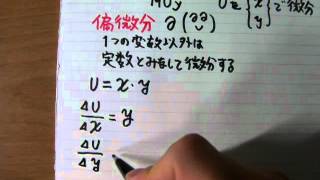 Uを{x y}で微分
偏微分 ∂(∂∂)
1つの変数以外は
定数とみなして微分する
U = x・y
ΔU/Δx = y
ΔU/Δy